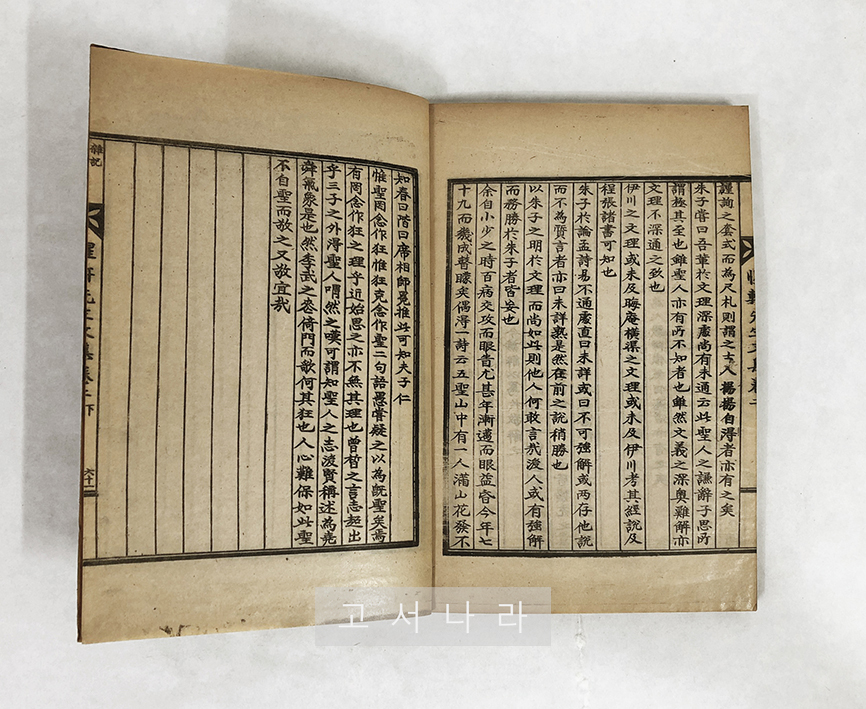 謹詢之套式而為尺札則謂之士人揚揚自得者亦有之矣
朱子嘗曰吾輩於文理深處尚有未通云此聖人之謙辭子思所
謂極其至也雖聖人亦有所不知者也雖然文義之深奧難解亦
文理不深通之致也
伊川之文理或未及晦庵橫渠之文理或未及伊川考其經說及
程張諸書可知也
朱子於論孟詩易不通處直曰未詳或曰不可強解或兩存他說
而不為質言者亦曰未詳孰是然在前之說稍勝也
以朱子之明於文理而尚如此則他人何敢言哉後人或有強解
而務勝於朱子者皆妄也
余自小少之時百病交攻而眼昏尤甚年漸邁而眼益昏今年七
十九而幾成瞽矇矣偶得一詩云五聖山中有一人滿山花發不
知春曰階曰席相師冕推此可知夫子仁
惟聖罔念作狂惟狂克念作聖二句語愚嘗疑之以為旣聖矣焉
有罔念作狂之理乎近始思之亦不無其理也曾晳之言志超出
乎三子之外得聖人喟然之嘆可謂知聖人之志後賢稱述為堯
舜氣象是也然季武之喪倚門而歌何其狂也人心難保如此聖
不自聖而敬之又敬宜哉
雜記
先生文集卷二下
六十一
고서나라